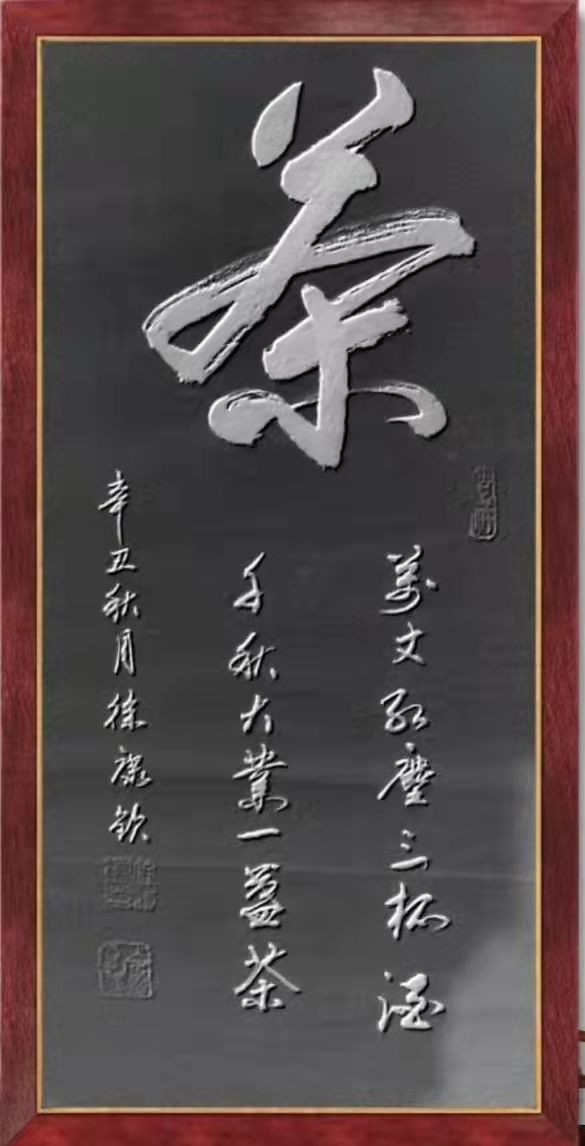 茶
萬丈紅塵三杯酒
千秋大業一壺茶
辛丑秋月徐康欽